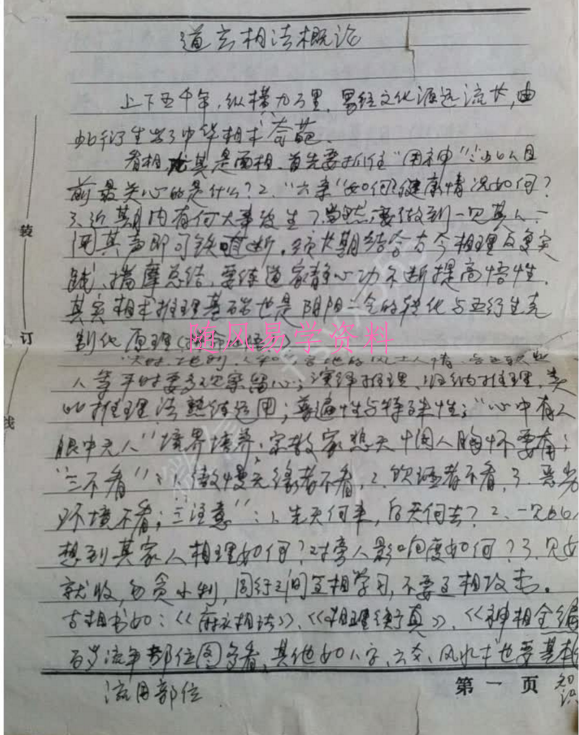 道玄相法概论
上下五千年，纵横九万里，易经文化源远流长，由
此衍生出了中华相术奇葩。
看相尤其是面相，首先要抓住"用神"：1、此人目
前最关心的是什么？2、"六亲"如何？健康情况如何？
3、近期内有何大事发生？当然要做到一见其人、一
闻其声即可铁口直断，须长期结合古今相理反复实
践，揣摩总结，要练道家静心功不断提高悟性，
其实相术推理基础也是阴阳二气的转化与五行生克
制化原理
随风易学资料
人等平时要多观察留心；演绎推理、归纳推理、类
比推理法熟练运用；普遍性与特殊性；"心中有人
眼中无人"境界培养，宗教家想天中国人胸怀要有；
"三不看"：1、傲慢无缘者不看，2、饮酒者不看，3、恶劣
环境不看；"三注意"：1、先天何来，后天何去？2、一见此人
想到其家人相理如何？对旁人影响程度如何？3、见好
就收，勿贪小利，同行之间互相学习，不要互相攻击。
古相书如：《麻衣相法》、《相理衡真》、《神相全编
百岁流年部位图多看，其他如八字、六爻、风水术也要基本
知识
流用部位
第一页
装
订
线